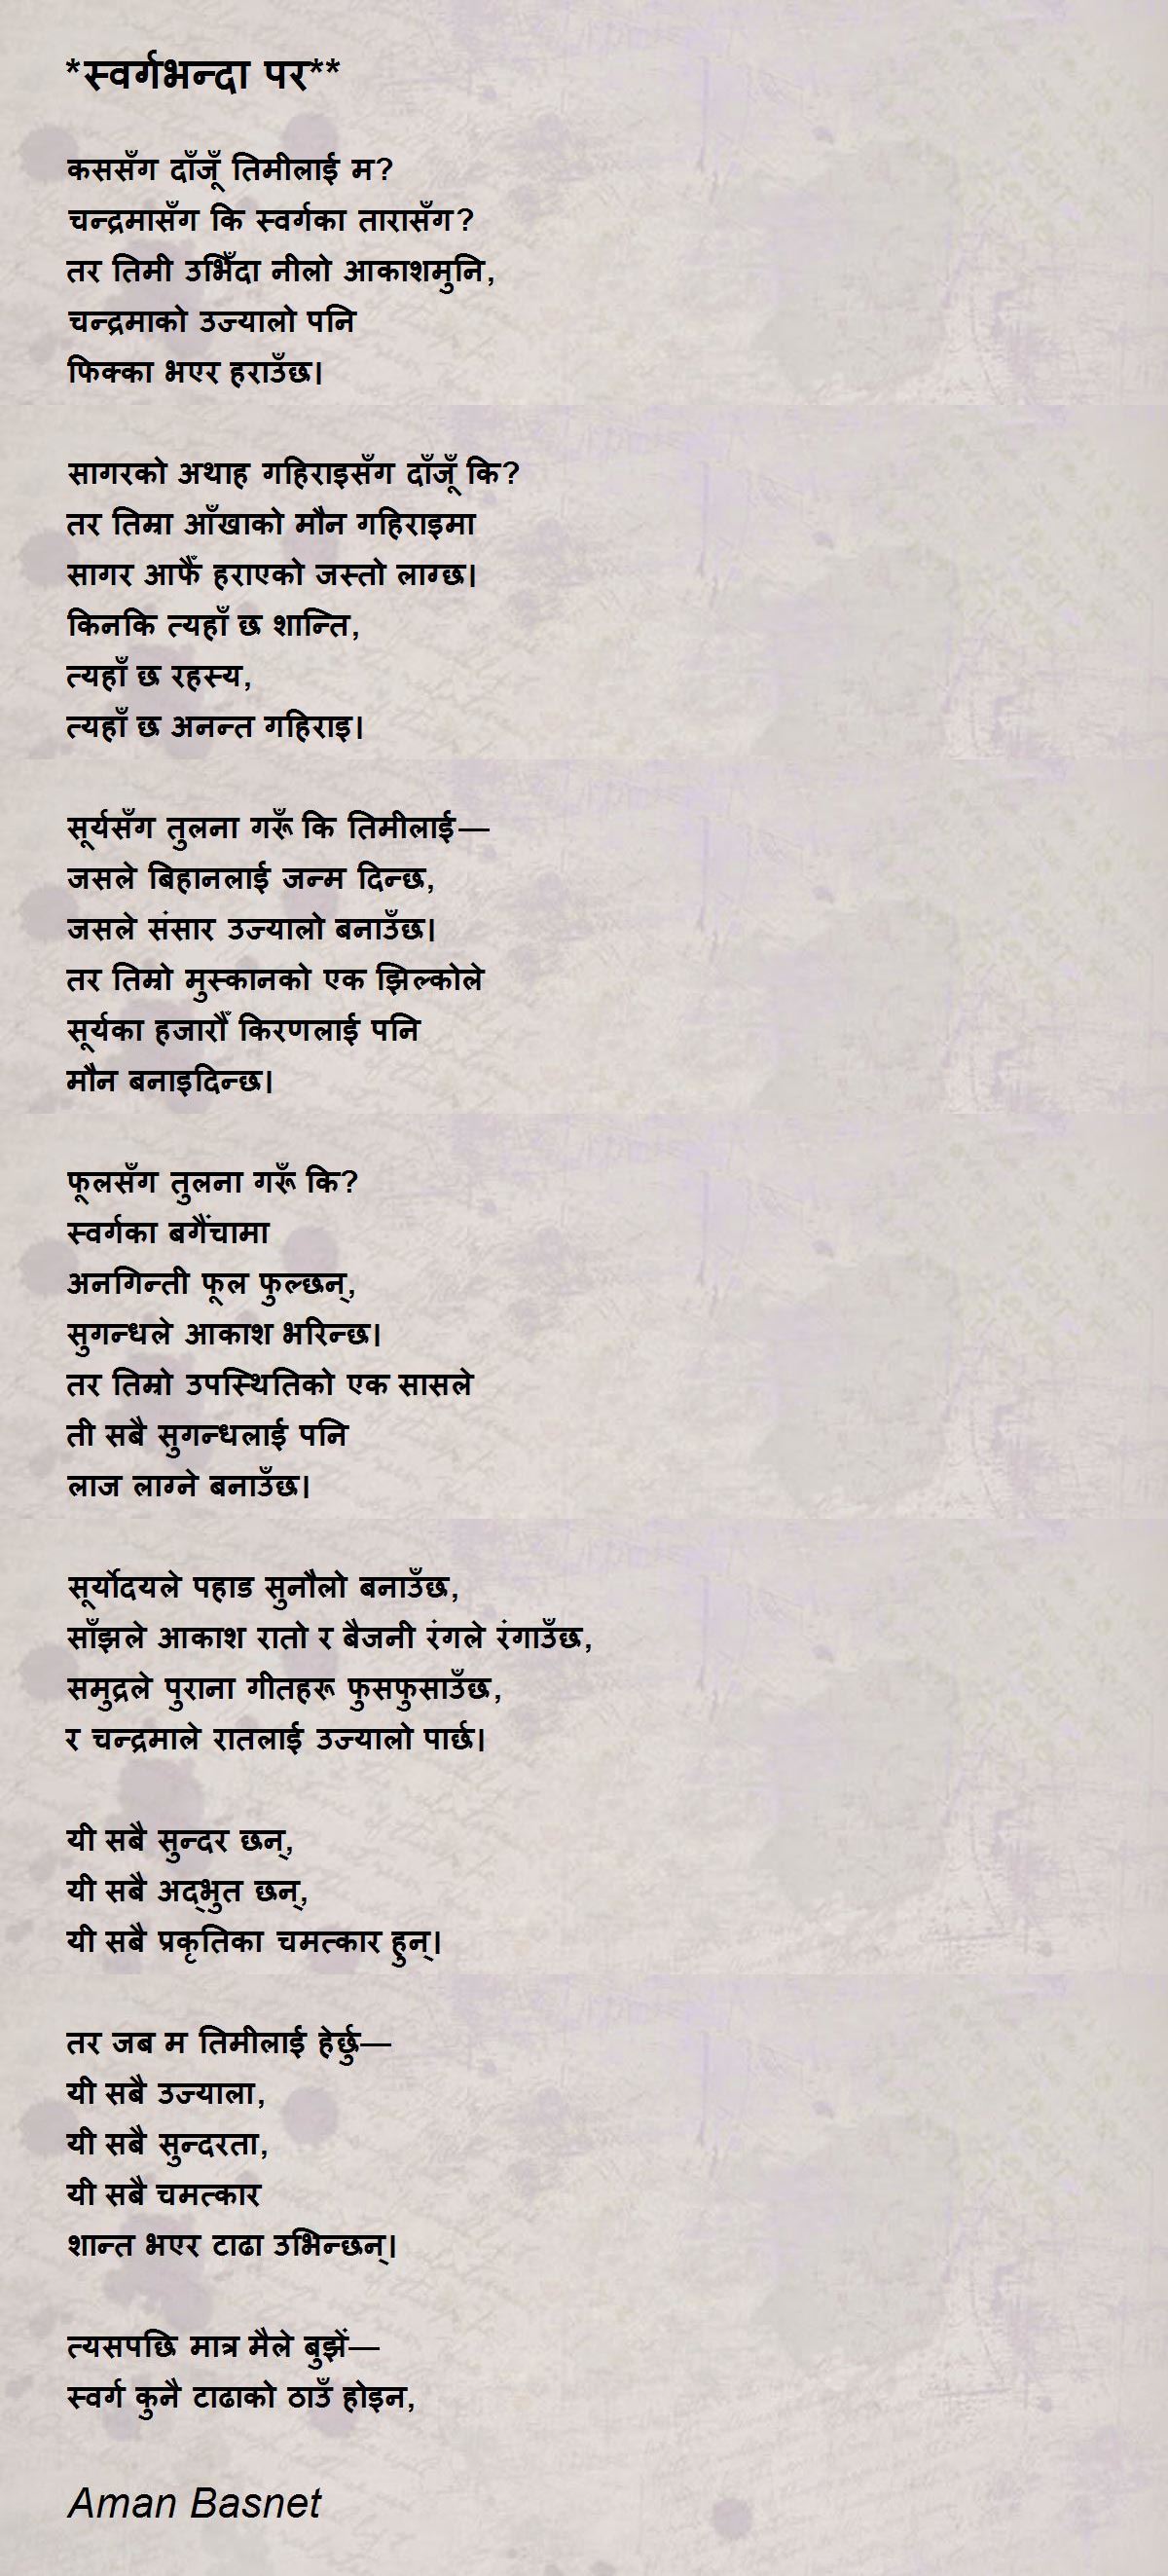 *स्वर्गभन्दा पर**
कससँग दाँजूँ तिमीलाई म?
चन्द्रमासँग कि स्वर्गका तारासँग?
तर तिमी उभिँदा नीलो आकाशमुनि,
चन्द्रमाको उज्यालो पनि
फिक्का भएर हराउँछ।
सागरको अथाह गहिराइसँग दाँजूँ कि?
तर तिम्रा आँखाको मौन गहिराइमा
सागर आफैँ हराएको जस्तो लाग्छ।
किनकि त्यहाँ छ शान्ति,
त्यहाँ छ रहस्य,
त्यहाँ छ अनन्त गहिराइ।
सूर्यसँग तुलना गरूँ कि तिमीलाई—
जसले बिहानलाई जन्म दिन्छ,
जसले संसार उज्यालो बनाउँछ।
तर तिम्रो मुस्कानको एक झिल्कोले
सूर्यका हजारौँ किरणलाई पनि
मौन बनाइदिन्छ।
फूलसँग तुलना गरूँ कि?
स्वर्गका बगैंचामा
अनगिन्ती फूल फुल्छन्,
सुगन्धले आकाश भरिन्छ।
तर तिम्रो उपस्थितिको एक सासले
ती सबै सुगन्धलाई पनि
लाज लाग्ने बनाउँछ।
सूर्योदयले पहाड सुनौलो बनाउँछ,
साँझले आकाश रातो र बैजनी रंगले रंगाउँछ,
समुद्रले पुराना गीतहरू फुसफुसाउँछ,
र चन्द्रमाले रातलाई उज्यालो पार्छ।
यी सबै सुन्दर छन्,
यी सबै अद्‌भुत छन्,
यी सबै प्रकृतिका चमत्कार हुन्।
तर जब म तिमीलाई हेर्छु—
यी सबै उज्याला,
यी सबै सुन्दरता,
यी सबै चमत्कार
शान्त भएर टाढा उभिन्छन्।
त्यसपछि मात्र मैले बुझें—
स्वर्ग कुनै टाढाको ठाउँ होइन,
Aman Basnet